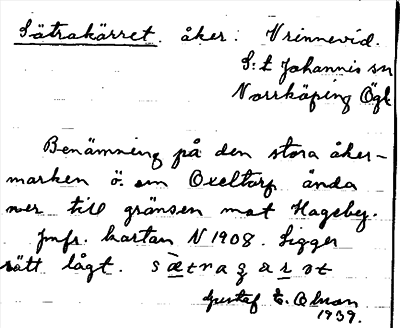 Sätrakärret. åker. Vrinnevid.
S:t Johannis sn
Norrköping Ögl
Benämning på den stora åker-
marken ö. om Oxeltorp ända
ner till gränsen mot Hageby.
Jmfr. kartan N 1908. Ligger
rätt lågt. sætragarət
Gustaf E. Olsson
1939.